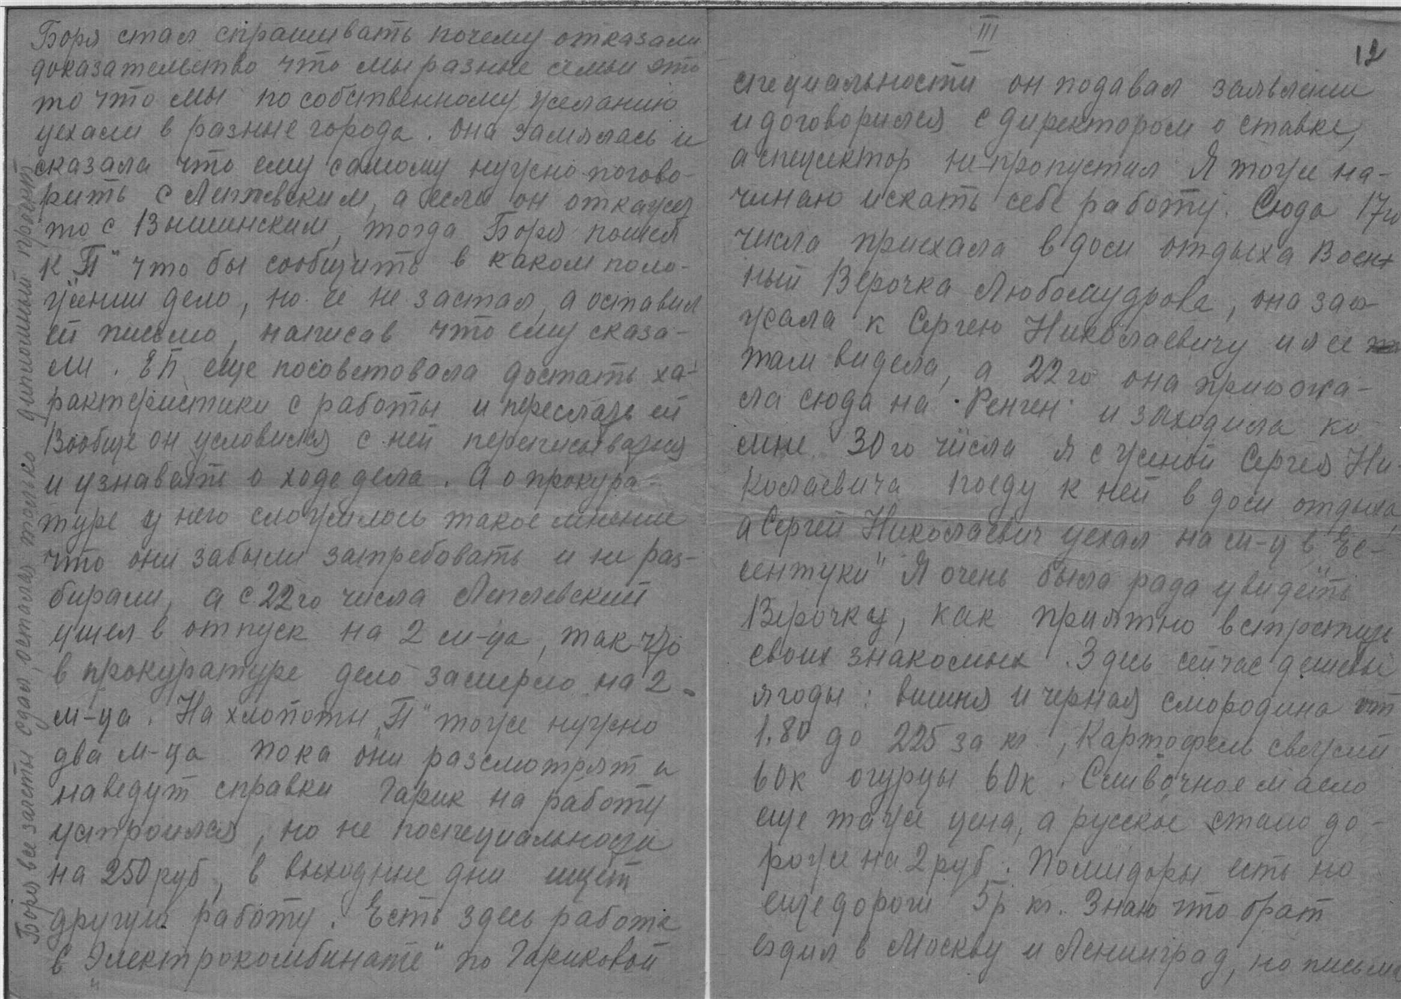 Боря стал спрашивать почему отказали
доказательство что мы разные семьи это
то что мы по собственному желанию
уехали в разные города. Она замялась и
сказала что ему самому нужно погово-
рить с Леплевским, а если он откажет
то с Вышинским, тогда Боря пошел
к "П" что бы сообщить в каком поло-
жении дело, но ее не застал, а оставил
ей письмо, написав что ему сказа-
ли. ЕП еще посоветовала достать ха-
рактеристики с работы и переслать ей
Вообще он условился с ней переписываться
и узнавать о ходе дела. А о прокура-
туре у него сложилось такое мнение
что они забыли затребовать и не раз-
бирали, а с 22го числа Леплевский
ушел в отпуск на 2 м-ца, так что
в прокуратуре дело замерло на 2
м-ца. На хлопоты "П" тоже нужно
два м-ца пока они разсмотрят и
наведут справки Гарик на работу
устроился, но не поспециальности
на 250 руб, в выходные дни ищет
другую работу. Есть здесь работа
в "Электрокомбинате" по Гариковой
Боря все зачеты сдал, остался только дипломный проект
III
12
специальности он подавал заявление
и договорился с директором о ставке,
а спецсектор не пропустил Я тоже на-
чинаю искать себе работу. Сюда 17го
числа приехала в дом отдыха
Верочка Любомудрова, она зае-
жала к Сергею Николаевичу и я ее
там видела, а 22го она приезжа-
ла сюда на "Ренген" и заходила ко
мне. 30го числа я с женой Сергея Ни-
колаевича поеду к ней в дом отдыха,
а Сергей Николаевич уехал на м-ц в "Ес-
сентуки" Я очень была рада увидеть
Верочку, как приятно встретить
своих знакомых. Здесь сейчас дешевы
ягоды: вишня и черная смородина от
1.80 до 225 за кг., Картофель свежий
60к огурцы 60к. Сливочное масло
еще таже цена, а русское стало до-
роже на 2 руб. Помидоры есть но
еще дороги 5р кг. Знаю что брат
ездил в Москву и Ленинград, но письма